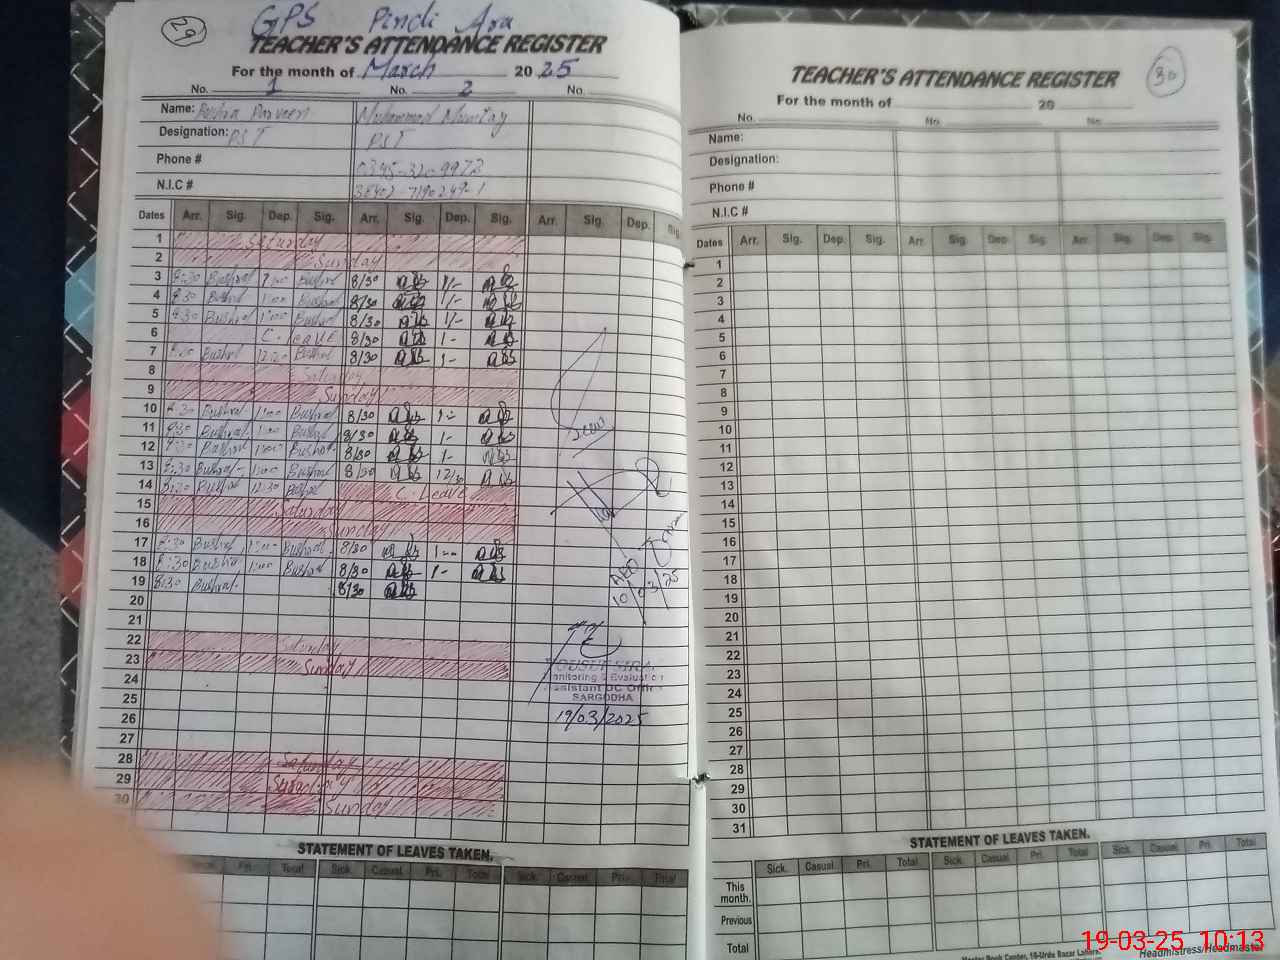 29
GPS Pindi Ara
TEACHER'S ATTENDANCE REGISTER
For the month of March 2025
No. 1 No. 2 No.
Name: Bushra Parveen Muhammad Mumtaz
Designation: PST PST
Phone #
N.I.C #
Dates Arr. Sig. Dep. Sig. Arr. Sig. Dep. Sig. Arr. Sig. Dep. Sig.
1 Saturday
2 Sunday
3 8:30 Bushra 1:00 Bushra 8/30 1/-
4 8:30 Bushra 1:00 Bushra 8/30 1/-
5 8:30 Bushra 1:00 Bushra 8/30 1/-
6 C. leave 8/30 1-
7 8:30 Bushra Bushra 8/30 1-
8 Saturday
9 Sunday
10 8:30 Bushra 1:00 Bushra 8/30 1-
11 8:30 Bushra 1:00 Bushra 8/30 1-
12 8:30 Bushra 1:00 Bushra 8/30 1-
13 8:30 Bushra 1:00 Bushra 8/30 12/30
14 8:30 Bushra 12:30 Bushra C. Leave
15 Saturday
16 Sunday
17 8:30 Bushra 1:00 Bushra 8/30 1--
18 8:30 Bushra 1:00 Bushra 8/30 1-
19 8:30 Bushra 8/30
20
21
22 Saturday
23 Sunday
24
25
26
27
28 Saturday
29 Sunday
30 Sunday
Seen
AEO
10/03/25
Monitoring & Evaluation
Assistant DC Office
SARGODHA
19/03/2025
STATEMENT OF LEAVES TAKEN.
Pri. Total Sick. Casual. Pri. Total Sick. Casual. Pri. Total
30
TEACHER'S ATTENDANCE REGISTER
For the month of 20
No. No. No.
Name:
Designation:
Phone #
N.I.C #
Dates Arr. Sig. Dep. Sig. Arr. Sig. Dep. Sig. Arr. Sig. Dep. Sig.
1
2
3
4
5
6
7
8
9
10
11
12
13
14
15
16
17
18
19
20
21
22
23
24
25
26
27
28
29
30
31
STATEMENT OF LEAVES TAKEN.
Sick. Casual. Pri. Total Sick. Casual. Pri. Total Sick. Casual. Pri. Total
This month.
Previous
Total
Master Book Center, 16-Urdu Bazar Lahore. Headmistress/Headmaster
19-03-25 10:13